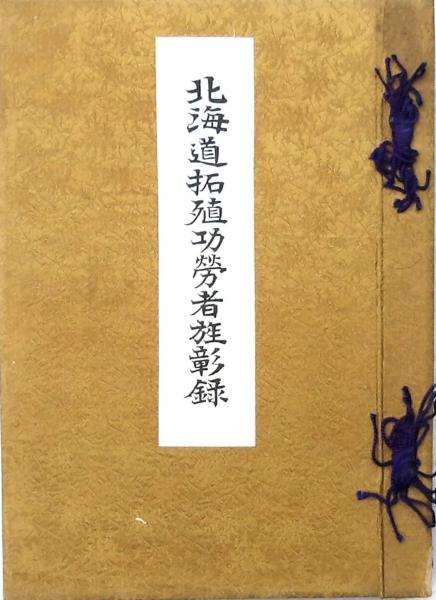 北海道拓殖功勞者旌彰録